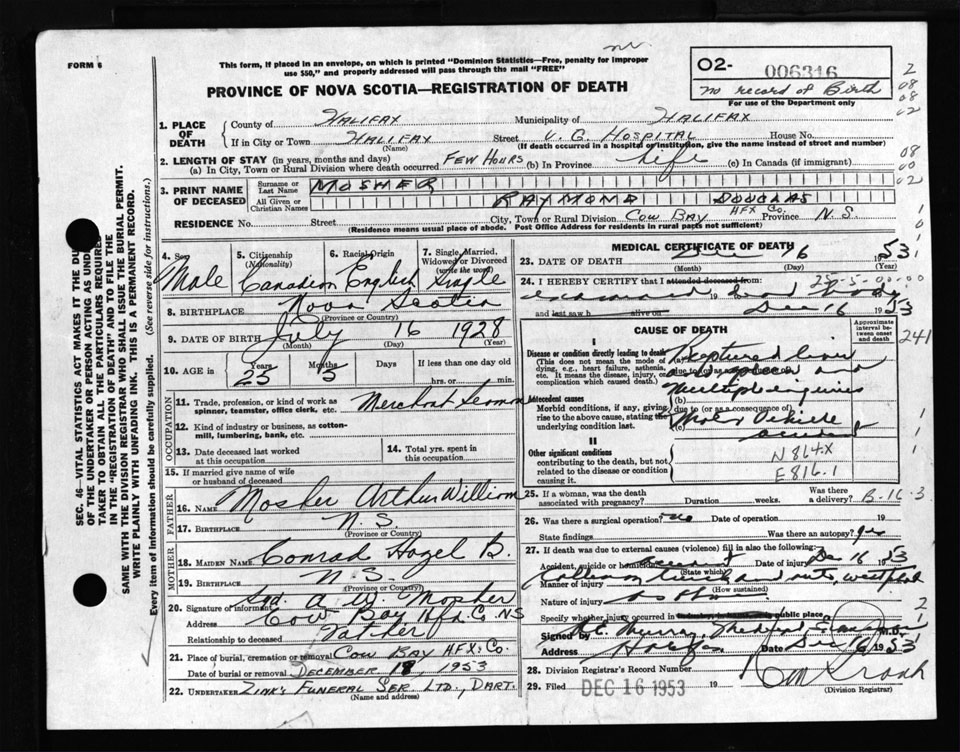 FORM 6
This form, if placed in an envelope, on which is printed "Dominion Statistics—Free, penalty for improper
use $50," and properly addressed will pass through the mail "FREE"
O2- 006316
no record of Birth
For use of the Department only
PROVINCE OF NOVA SCOTIA—REGISTRATION OF DEATH
1. PLACE OF DEATH
County of HALIFAX Municipality of HALIFAX
If in City or Town HALIFAX Street V. G. HOSPITAL House No.
(Name) (If death occurred in a hospital or institution, give the name instead of street and number)
2. LENGTH OF STAY (in years, months and days)
(a) In City, Town or Rural Division where death occurred FEW HOURS (b) In Province Life (c) In Canada (if immigrant)
3. PRINT NAME OF DECEASED
Surname or Last Name MOSHER
All Given or Christian Names RAYMOND DOUGLAS
RESIDENCE No. Street City, Town or Rural Division COW BAY HFX Co. Province N.S.
(Residence means usual place of abode. Post Office Address for residents in rural parts not sufficient)
4. Sex Male
5. Citizenship (Nationality) Canadian
6. Racial Origin English
7. Single, Married, Widowed or Divorced (write the word) Single
8. BIRTHPLACE Nova Scotia
(Province or Country)
9. DATE OF BIRTH July 16 1928
(Month) (Day) (Year)
10. AGE in Years Months Days If less than one day
25 5 hrs. or min.
OCCUPATION
11. Trade, profession, or kind of work as
spinner, teamster, office clerk, etc. Merchant Seaman
12. Kind of industry or business, as cotton-
mill, lumbering, bank, etc.
13. Date deceased last worked
at this occupation
14. Total yrs. spent in
this occupation
15. If married give name of wife
or husband of deceased
FATHER
16. NAME Mosher Arthur William
17. BIRTHPLACE N.S.
(Province or Country)
MOTHER
18. MAIDEN NAME Conrad Hazel B.
19. BIRTHPLACE N.S.
(Province or Country)
20. Signature of informant Sgd. A. W. Mosher
Address Cow Bay, Hfx. Co. NS
Relationship to deceased Father
21. Place of burial, cremation or removal COW BAY HFX. Co.
Date of burial or removal DECEMBER 18, 1953
22. UNDERTAKER ZINK'S FUNERAL SER. LTD., DART.
(Name and address)
MEDICAL CERTIFICATE OF DEATH
23. DATE OF DEATH Dec 16 1953
(Month) (Day) (Year)
24. I HEREBY CERTIFY that I attended deceased from:
25-5-00-00
19
and last saw h alive on Dec 16 1953
CAUSE OF DEATH
Approximate interval between onset and death
I
Disease or condition directly leading to death
(This does not mean the mode of dying, e.g., heart failure, asthenia, etc. It means the disease, injury, or complication which caused death.)
Ruptured liver
and spleen and
multiple injuries
Antecedent causes
Morbid conditions, if any, giving rise to the above cause, stating the underlying condition last.
(b) due to (or as a consequence of)
Motor Vehicle
(c) accident
II
Other significant conditions
contributing to the death, but not related to the disease or condition causing it.
N864X
E816.1
25. If a woman, was the death
associated with pregnancy? Duration weeks. Was there a delivery? B-16-3
26. Was there a surgical operation? no Date of operation 19
State findings Was there an autopsy? yes
27. If death was due to external causes (violence) fill in also the following:
Accident, suicide or homicide? accident Date of injury Dec 16 1953
(State which)
Manner of injury
(How sustained)
Nature of injury as above
Specify whether injury occurred in public place
Signed by Murray, Medical M.D.
Address Halifax Date Dec 16 1953
28. Division Registrar's Record Number
29. Filed DEC 16 1953 19
(Division Registrar)
SEC. 46—VITAL STATISTICS ACT MAKES IT THE DU
OF THE UNDERTAKER OR PERSON ACTING AS UND
TAKER TO OBTAIN ALL THE PARTICULARS REQUIRED
IN THE "REGISTRATION OF DEATH" AND TO FILE THE
SAME WITH THE DIVISION REGISTRAR WHO SHALL ISSUE THE BURIAL PERMIT.
WRITE PLAINLY WITH UNFADING INK. THIS IS A PERMANENT RECORD.
Every item of information should be carefully supplied. (See reverse side for instructions.)
2
08
08
02
08
00
02
241